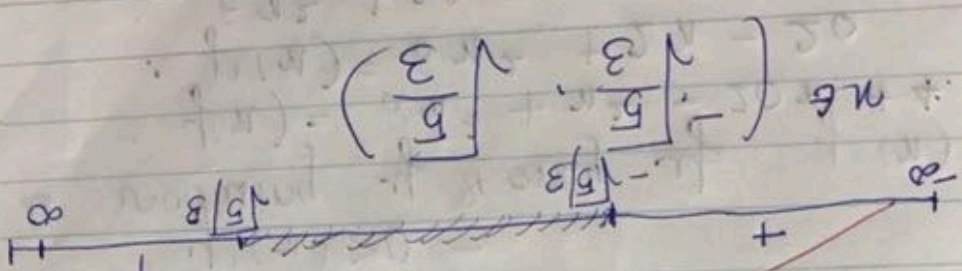 + +
-∞ -√5/3 √5/3 ∞
∴ x ∈ (-√(5/3), √(5/3))